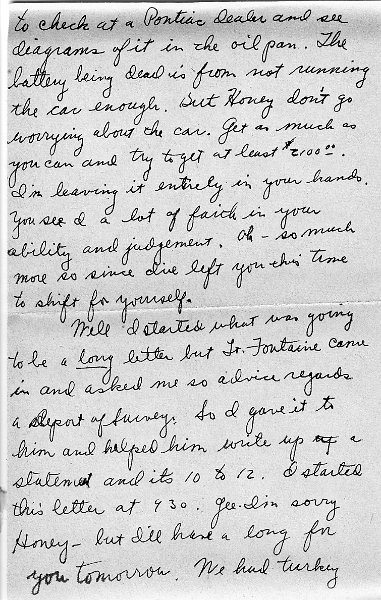 to check at a Pontiac dealer and see
diagrams of it in the oil pan. The
battery being dead is from not running
the car enough. But Honey don't go
worrying about the car. Get as much as
you can and try to get at least $2100.00.
I'm leaving it entirely in your hands.
You see I a lot of faith in your
ability and judgement. Oh - so much
more so since I've left you this time
to shift for yourself.
Well I started what was going
to be a long letter but Lt. Fontaine came
in and asked me so advice regards
a Report of Survey. So I gave it to
him and helped him write up a
statement and its 10 to 12. I started
this letter at 930. Gee I'm sorry
Honey - but I'll have a long for
you tomorrow. We had turkey